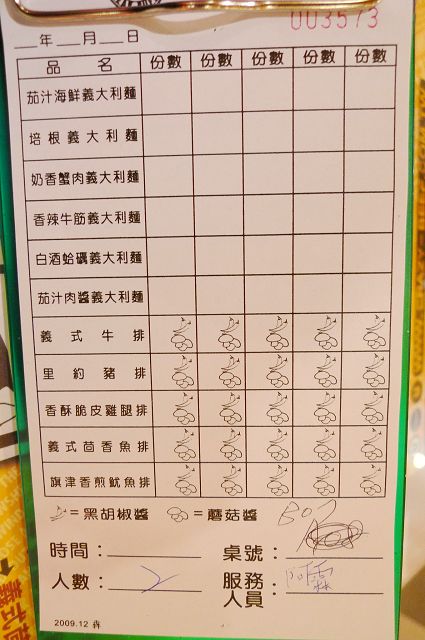 003573
年 月 日
品名 份數 份數 份數 份數 份數
茄汁海鮮義大利麵
培根義大利麵
奶香蟹肉義大利麵
香辣牛筋義大利麵
白酒蛤蠣義大利麵
茄汁肉醬義大利麵
義式牛排
里約豬排
香酥脆皮雞腿排
義式茴香魚排
旗津香煎魷魚排
=黑胡椒醬 =蘑菇醬
時間: 桌號:
人數: 2 服務人員:
2009.12